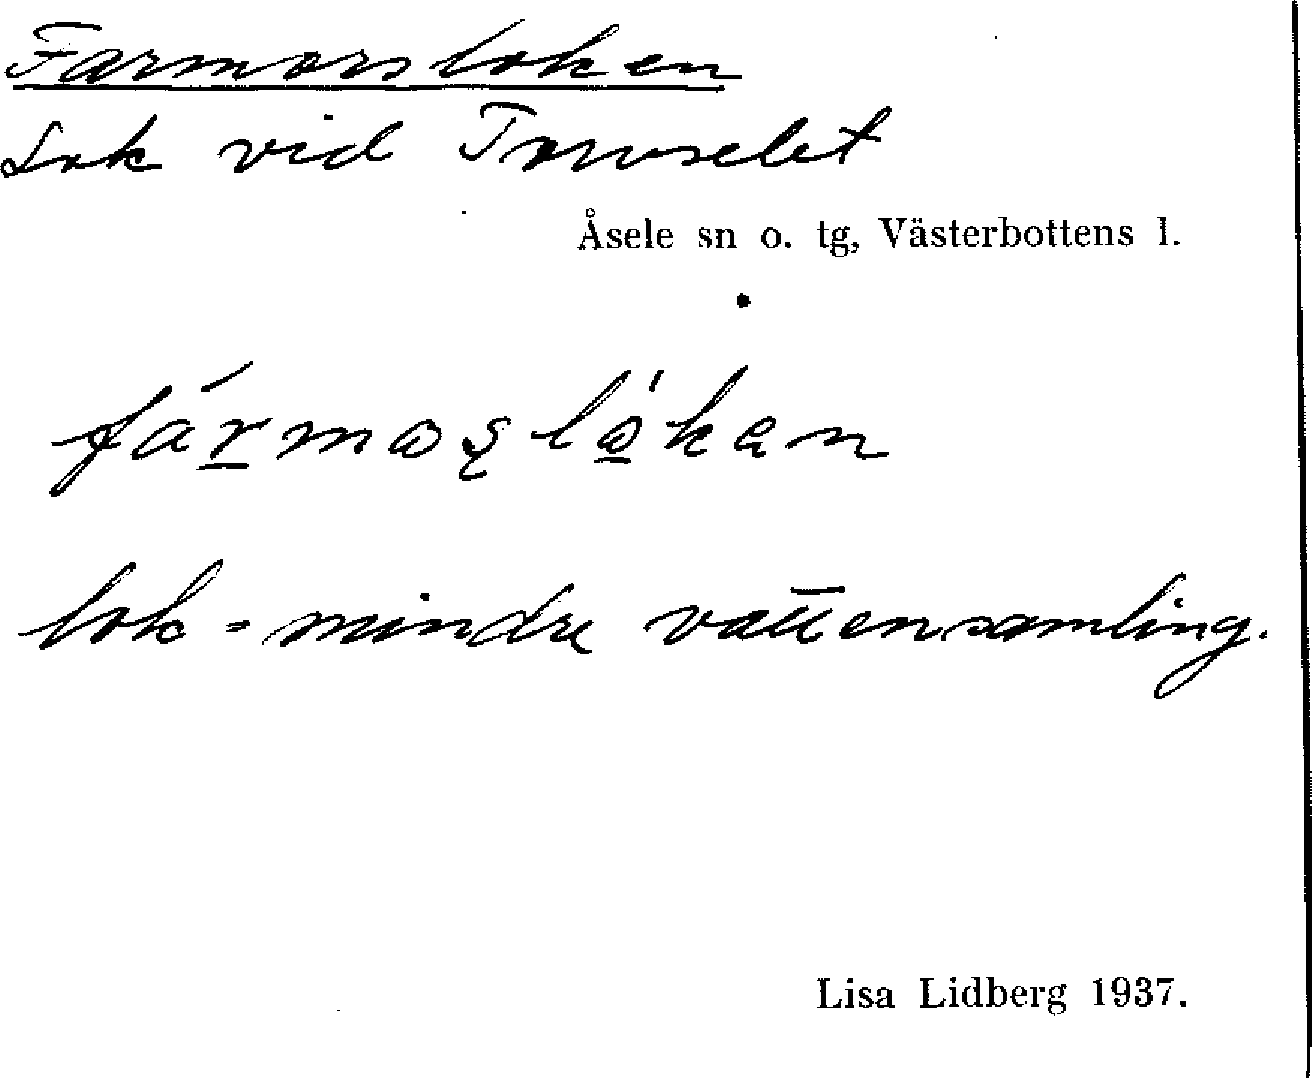 Farmorsloken
Lok vid Torvselet
Åsele sn o. tg, Västerbottens l.
lok = mindre vattensamling.
Lisa Lidberg 1937.